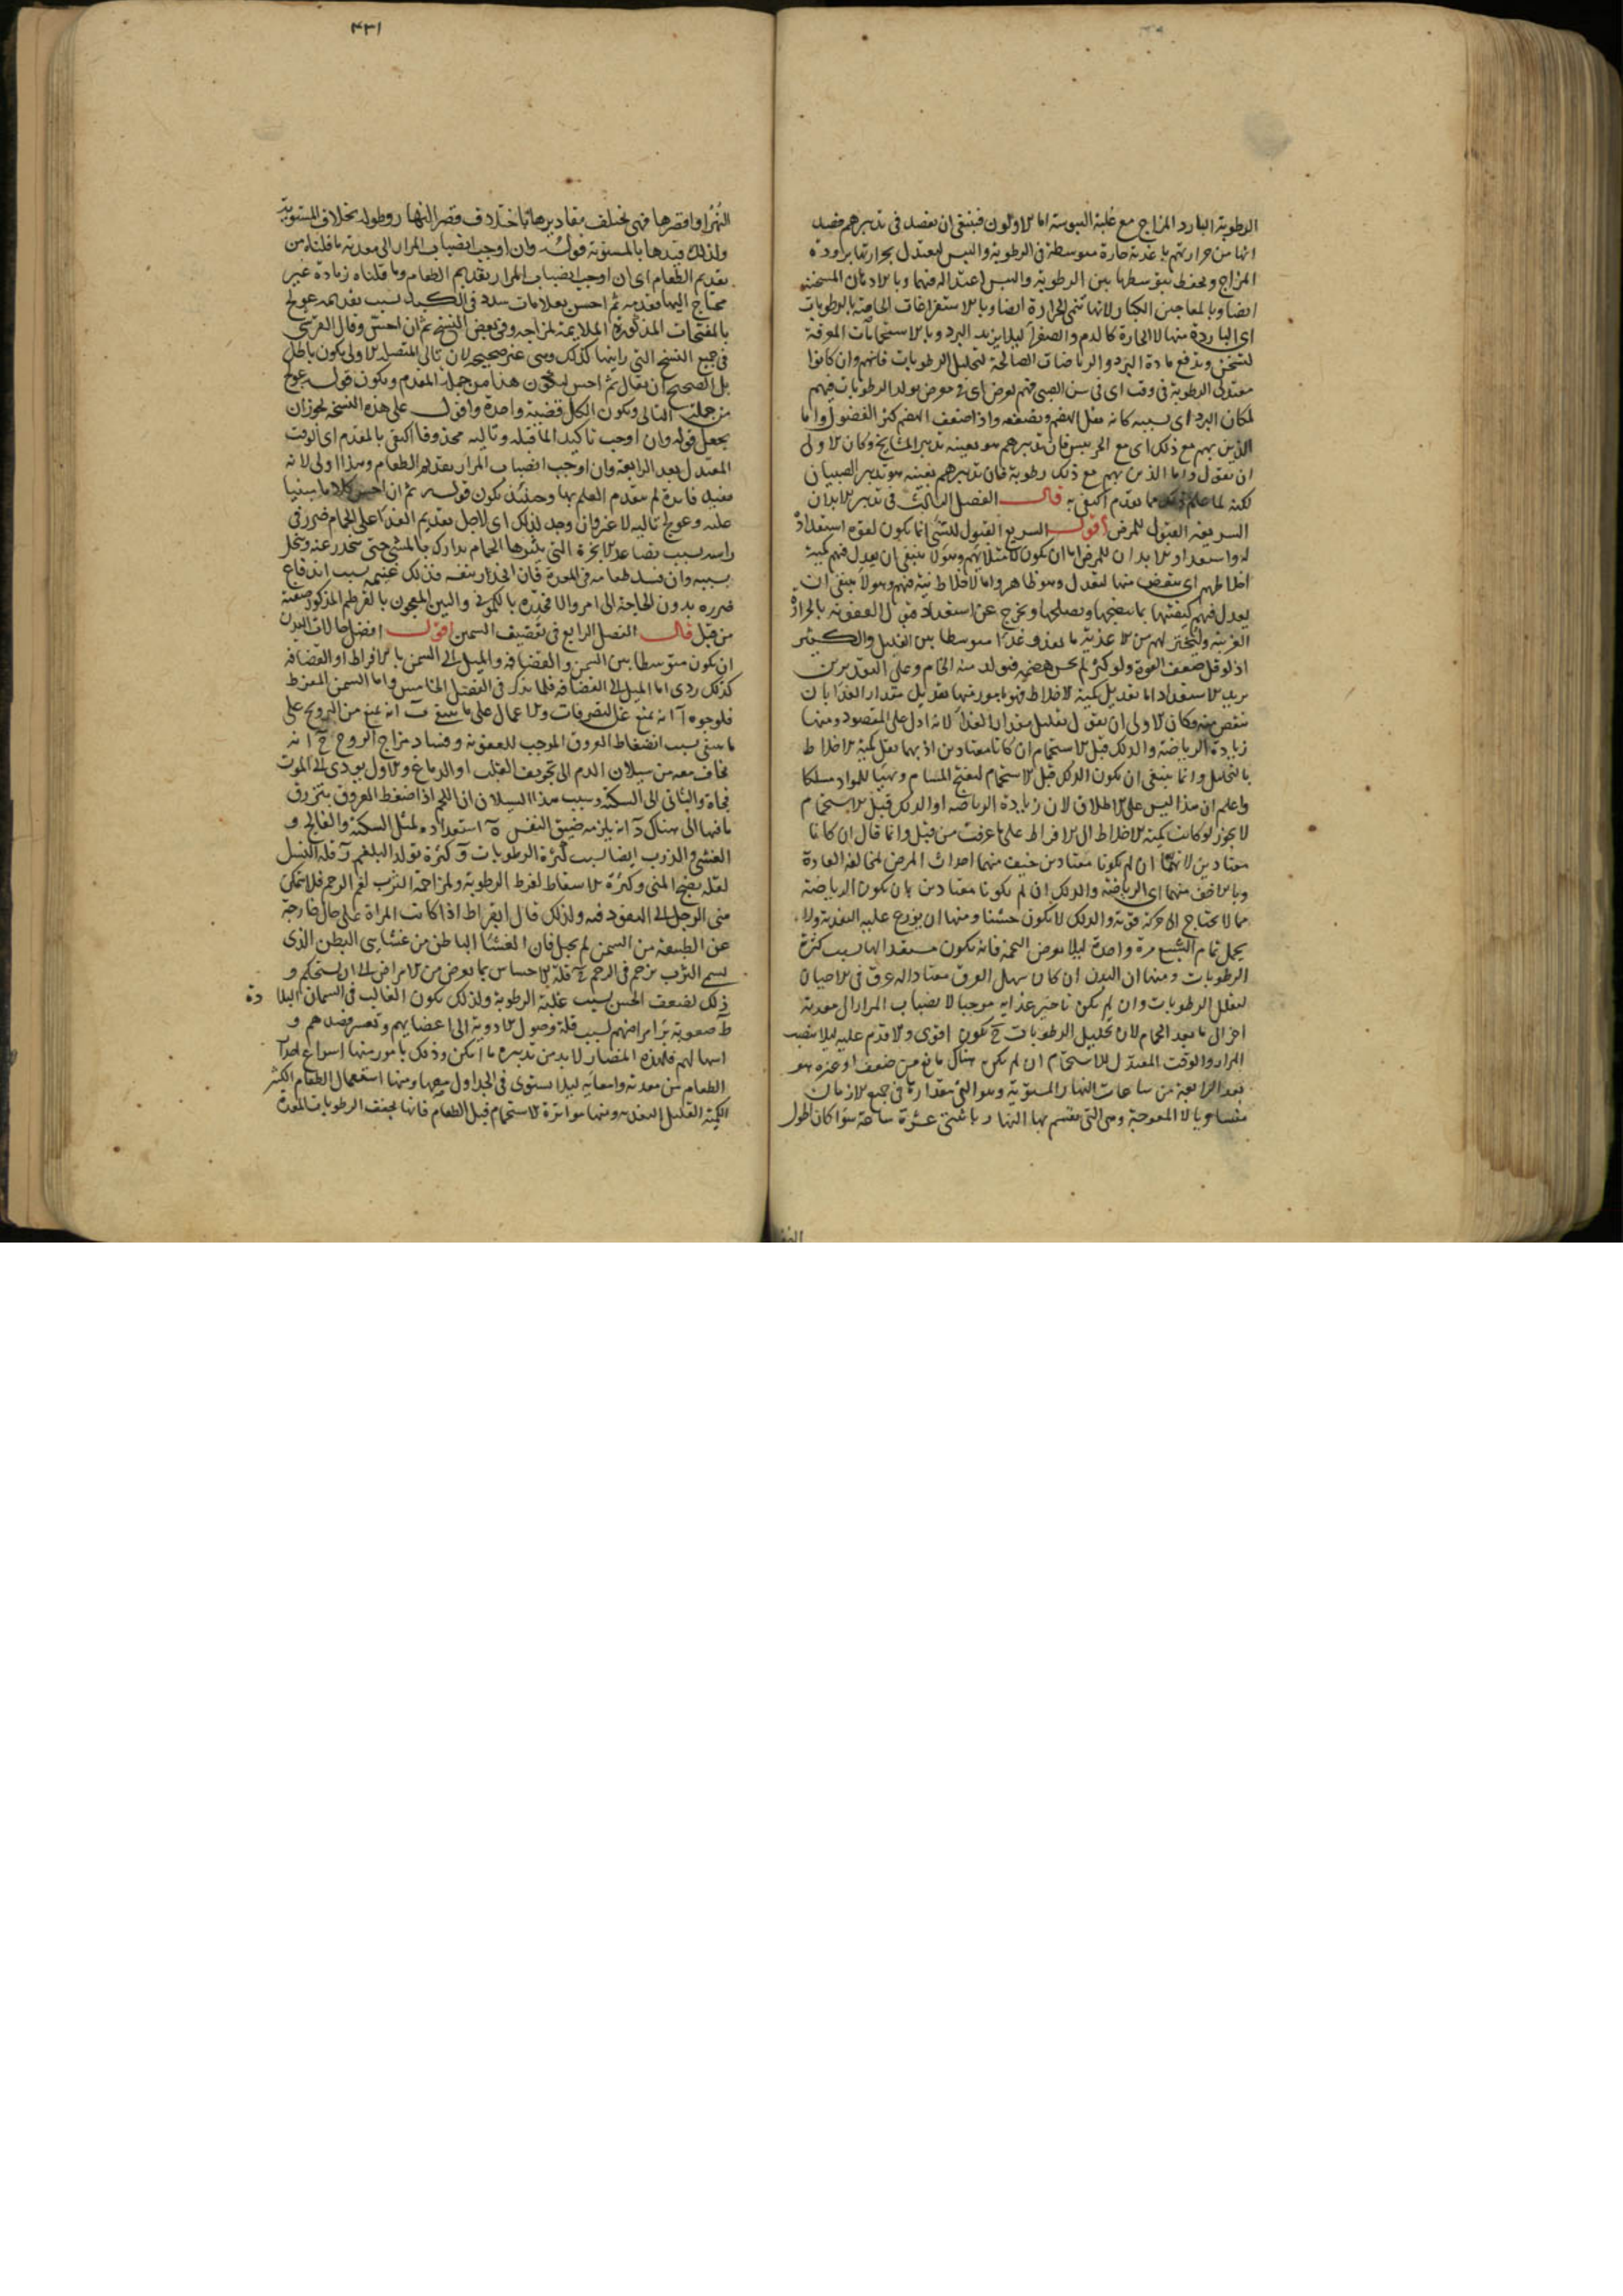 الرطوبة البارد المزاج مع غلبة اليبوسة اما الاولون فينبغى ان يقصد فى تدبيرهم قصد
انما من حرارتهم باغذية حارة متوسطة فى الرطوبة واليبس ليعتدل بحرارتها برودة
المزاج ويحفظ بتوسطها بين الرطوبة واليبس اعتداله فيهما وبالادهان المسخنة
ايضا وبالمعاجين الكبار لانها تنمى الحرارة ايضا وبالاستفراغات الخاصة بالرطوبات
اى الباردة منها لا الحارة كالدم والصفراء ليلا يزيد البرد وبالاستحمامات المعرقة
لتسخن وتدفع مادة البرد والرياضات الصالحة لتحليل الرطوبات فانهم وان كانوا
معتدلى الرطوبة فى وقت اى فى سن الصبى فهم بعرض اى فى معرض تولد الرطوبات فيهم
لمكان البرد اى بسببه كانه يقل الهضم ويضعفه واذا ضعف الهضم كثر الفضول واما
الذين بهم مع ذلك اى مع الحر يبس فان تدبيرهم هو بعينه تدبير المشايخ وكان الاولى
ان نقول واما الذين بهم مع ذلك رطوبة فان تدبيرهم بعينه هو تدبير الصبيان
لكنه لما علم مما تقدم اكتفى به قال الفصل الثالث فى تدبير الابدان
السريعة القبول للمرض اقول السريع القبول للشئ انما يكون لقوة استعداده
له واستعداد الابدان للمرض اما ان يكون لامتلائهم وهولاء ينبغى ان يعدل فيهم كمية
اخلاطهم اى ينقص منها ليعتدل وهو ظاهر واما لاخلاط نية فيهم وهولاء ينبغى ان
يعدل فيهم كيفيتها بما ينضجها ويصلحها ويخرج عن استعداد قبول العفونة بالحرارة
الغريبة وليختر لهم من الاغذية ما يغذو غذاء متوسطا بين القليل والكثير
اذ لو قل ضعف القوة ولو كثر لم يحسن هضمه فتولد منه الخام وعلى التقديرين
يزيد الاستعداد اما تعديل كمية الاخلاط فهو بامور منها تعديل مقدار الغذا بان
ينقص منه وكان الاولى ان يقول تقليل مقدار الغذا لانه ادل على المقصود ومنها
زيادة الرياضة والدلك قبل الاستحمام ان كانا معتادين اذ بهما يقل كمية الاخلاط
بالتحليل وانما ينبغى ان يكون الدلك قبل الاستحمام ليفتح المسام ويهيئ للمواد مسلكا
واعلم ان هذا ليس على الاطلاق لان زيادة الرياضة او الدلك قبل الاستحمام
لا يجوز لو كانت كمية الاخلاط الى الافراط على ما عرفت من قبل وانما قال ان كانا
معتادين لانهما ان لم يكونا معتادين خيف منهما احداث المرض لمخالفة العادة
وبالاخف منهما اى الرياضة والدلك ان لم يكونا معتادين بان يكون الرياضة
مما لا يحتاج الى حركة قوية والدلك لا يكون خشنا ومنها ان يوزع عليه التغذية ولا
يحمل تمام الشبع مرة واحدة ليلا يعرض التخمة فانه يكون مستعدا لها بسبب كثرة
الرطوبات ومنها ان البدن ان كان سهل العرق معتادا له عرق فى الاحيان
ليقلل الرطوبات وان لم يكن تاخير غذايه موجبا لانصباب المرار الى معدته
اخر الى ما بعد الحمام لان تحليل الرطوبات ح يكون اقوى والا قدم عليه ليلا ينصب
المرار والوقت المعتدل للاستحمام ان لم يكن هناك مانع من ضعف او غيره هو
بعد الرابعة من ساعات النهار المستوية وهو التى مقدارها فى جميع الازمان
متساوية لا المعوجة وهى التى يقسم بها النهار باثنتى عشرة ساعة سواء كان اطول
٤٣١
النهر او اقصرها فهى تختلف مقاديرها باختلاف قصر النهار وطوله بخلاف المستوية
ولذلك قيدها بالمستوية قوله وان اوجب انصباب المرار الى معدته ما قلناه من
تقديم الطعام اى ان اوجب انصباب المرار تقديم الطعام وما قلناه زيادة غير
محتاج اليها فقدمه ثم احس بعلامات سدد فى الكبد بسبب تقديمه عولج
بالمفتحات المذكورة الملايمة لمزاجه وفى بعض النسخ ثم ان احس وقال القرشى
فى جميع النسخ التى رايتها كذلك وهى غير صحيحه لان تالى المتصلة الاولى يكون باطل
بل الصحيح ان يقال ثم احس ليكون هذا من جملة المقدم ويكون قوله عولج
من جملة التالى ويكون الكل قضية واحدة واقول على هذه النسخة يجوز ان
يجعل قوله وان اوجب تاكيدا لما قبله وتاليه محذوفا اكتفى بالمقدم اى الوقت
المعتدل بعد الرابعة وان اوجب انصباب المرار تقديم الطعام وهذا اولى لانه
مفيد فايدة لم يتقدم العلم بها وحينئذ يكون قوله ثم ان احس كلاما مبنيا
عليه وعولج تاليه لا غير وان وجد لذلك اى لاجل تقديم الغذا على الحمام ضررا فى
راسه بسبب تصاعد الابخرة التى يثيرها الحمام تدارك بالمشى حتى ينحدر عنه ويتحلل
بسببه وان فسد طعامه فى المعدة فان انحدار بنفسه فذلك غنيمه بسبب اندفاع
ضرره بدون الحاجة الى امر والا فحدره بالكمونى والتين المعجون بالقرطم المذكور صفته
من قبل قال الفصل الرابع فى تقضيف السمين اقول افضل حالات البدن
ان يكون متوسطا بين السمن والقضافة والميل الى السمن بالافراط او القضافة
كذلك ردى اما الميل الى القضافة فلما يذكر فى الفصل الخامس واما السمن المفرط
فلوجوه آ انه يمنع عن التصرفات والاعمال على ما سبق ب انه يمنع من الترويح على
ما ينبغى بسبب انضغاط العروق الموجب للعفونة وفساد مزاج الروح ج انه
يخاف معه من سيلان الدم الى تجويف القلب او الدماغ والاول يودى الى الموت
فجأة والثانى الى السكتة وسبب هذا السيلان ان اللحم اذا ضغط العروق ينزرق
ما فيها الى هناك د انه يلزمه ضيق النفس ه استعداده لمثل السكتة والفالج و
الغشى والذرب ايضا بسبب كثرة الرطوبات و كثرة تولد البلغم ز قلة النسل
لقلة نضج المنى وكثرة الاسقاط لفرط الرطوبة ولمزاحمة الثرب لفم الرحم فلا يتمكن
منى الرجل الى النفوذ فيه ولذلك قال ابقراط اذا كانت المراة على حال خارجة
عن الطبيعة من السمن لم تحبل فان الغشاء الباطن من غشايى البطن الذى
يسمى الثرب يزحم فى الرحم ح قلة الاحساس بما يعرض من الامراض الى ان يستحكم و
ذلك لضعف الحس بسبب غلبة الرطوبة ولذلك يكون الغالب فى السمان البلادة
ط صعوبة برء امراضهم بسبب قلة وصول الادوية الى اعضايهم وتعسر فصدهم و
اسهالهم فلهذه المضار لا بد من تدبيره ما امكن وذلك بامور منها اسراع احدار
الطعام من معدته وامعايه ليلا يستوفى الجداول مصها ومنها استعمال الطعام الكثير
الكمية القليل التغذية ومنها مواترة الاستحمام قبل الطعام فانها تجفف الرطوبات المعدة